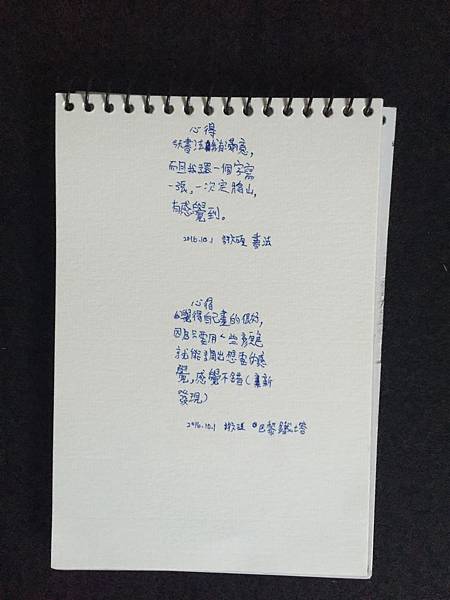 心得
書法 滿意,
而且我還一個字寫
一張,一次定勝山,
有感覺到。
2016.10.1 書法
心得
覺得自己畫的很好,
因為只要用 些顏色
就能調出想要的感
覺,感覺不錯(重新
發現)
2016.10.1 巴黎鐵塔